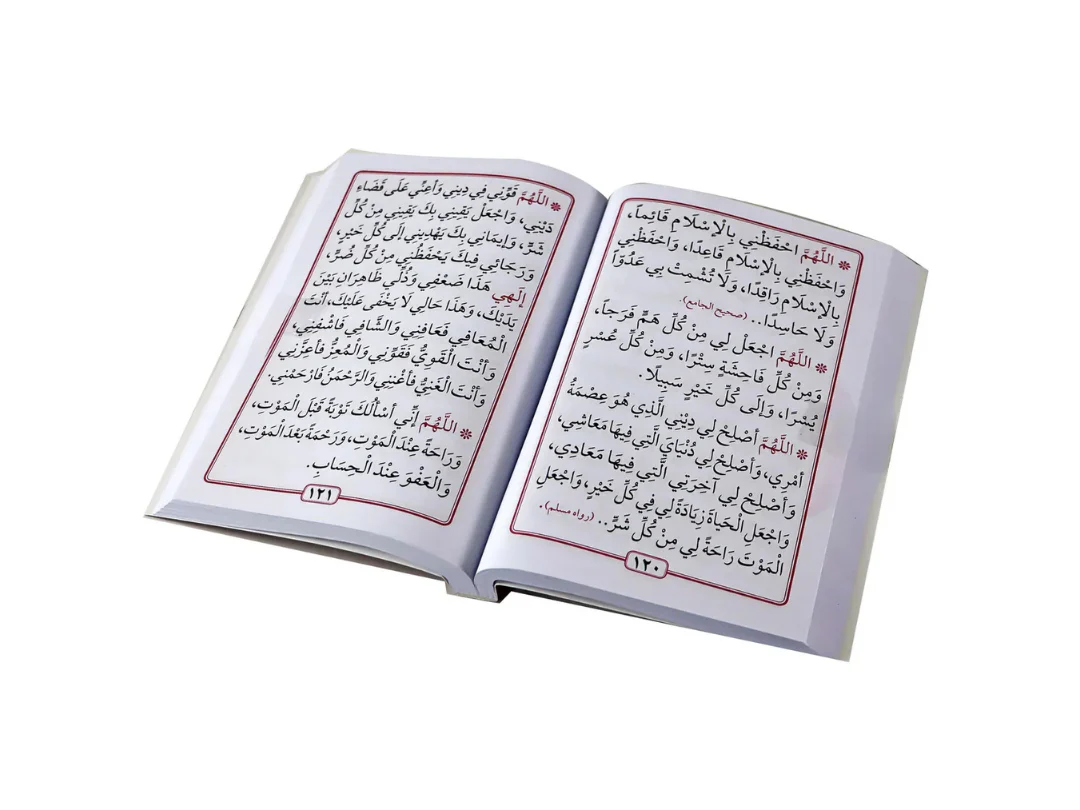 ❊ اللَّهُمَّ احْفَظْنِي بِالْإِسْلَامِ قَائِماً،
وَاحْفَظْنِي بِالْإِسْلَامِ قَاعِدًا، وَاحْفَظْنِي
بِالْإِسْلَامِ رَاقِدًا، وَلَا تُشْمِتْ بِي عَدُوّاً
وَلَا حَاسِدًا.. (صحيح الجامع).
❊ اللَّهُمَّ اجْعَلْ لِي مِنْ كُلِّ هَمٍّ فَرَجاً،
وَمِنْ كُلِّ فَاحِشَةٍ سِتْرًا، وَمِنْ كُلِّ عُسْرٍ
يُسْرًا، وَإِلَى كُلِّ خَيْرٍ سَبِيلًا.
❊ اللَّهُمَّ أَصْلِحْ لِي دِيْنِي الَّذِي هُوَ عِصْمَةُ
أَمْرِي، وَأَصْلِحْ لِي دُنْيَايَ الَّتِي فِيهَا مَعَاشِي،
وَأَصْلِحْ لِي آخِرَتِي الَّتِي فِيهَا مَعَادِي،
وَاجْعَلِ الْحَيَاةَ زِيَادَةً لِي فِي كُلِّ خَيْرٍ، وَاجْعَلِ
الْمَوْتَ رَاحَةً لِي مِنْ كُلِّ شَرٍّ.. (رواه مسلم).
١٢٠
❊ اللَّهُمَّ قَوِّنِي فِي دِينِي وَأَعِنِّي عَلَى قَضَاءِ
دَيْنِي، وَاجْعَلْ يَقِينِي بِكَ يَقِينِي مِنْ كُلِّ
شَرٍّ، وَإِيمَانِي بِكَ يَهْدِينِي إِلَى كُلِّ خَيْرٍ،
وَرَجَائِي فِيكَ يَحْفَظُنِي مِنْ كُلِّ ضُرٍّ،
إِلَهِي هَذَا ضَعْفِي وَذُلِّي ظَاهِرَانِ بَيْنَ
يَدَيْكَ، وَهَذَا حَالِي لَا يَخْفَى عَلَيْكَ، أَنْتَ
الْمُعَافِي فَعَافِنِي وَالشَّافِي فَاشْفِنِي،
وَأَنْتَ الْقَوِيُّ فَقَوِّنِي وَالْمُعِزُّ فَأَعِزَّنِي
وَأَنْتَ الْغَنِيُّ فَأَغْنِنِي وَالرَّحْمَنُ فَارْحَمْنِي.
❊ اللَّهُمَّ إِنِّي أَسْأَلُكَ تَوْبَةً قَبْلَ الْمَوْتِ،
وَرَاحَةً عِنْدَ الْمَوْتِ، وَرَحْمَةً بَعْدَ الْمَوْتِ،
وَالْعَفْوَ عِنْدَ الْحِسَابِ.
١٢١